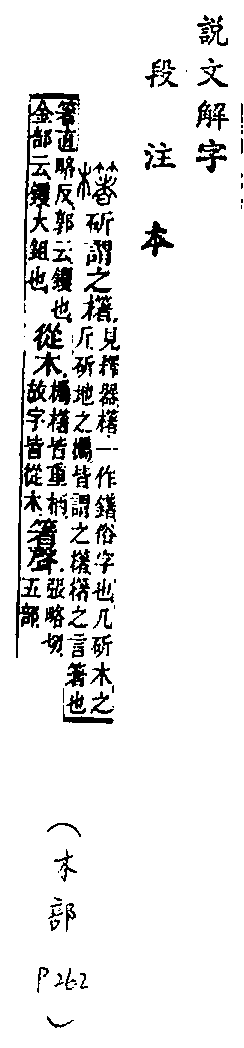 說文解字
段注本
櫡斫謂之櫡.
見釋器櫡一作鐯俗字也凡斫木之
斤斫地之欘皆謂之櫡櫡之言箸也
箸直略反郭云钁也
金部云钁大鉏也
從木.
欘櫡皆重柄.
故字皆從木
箸聲.
張略切.
五部.
(木部 P262)